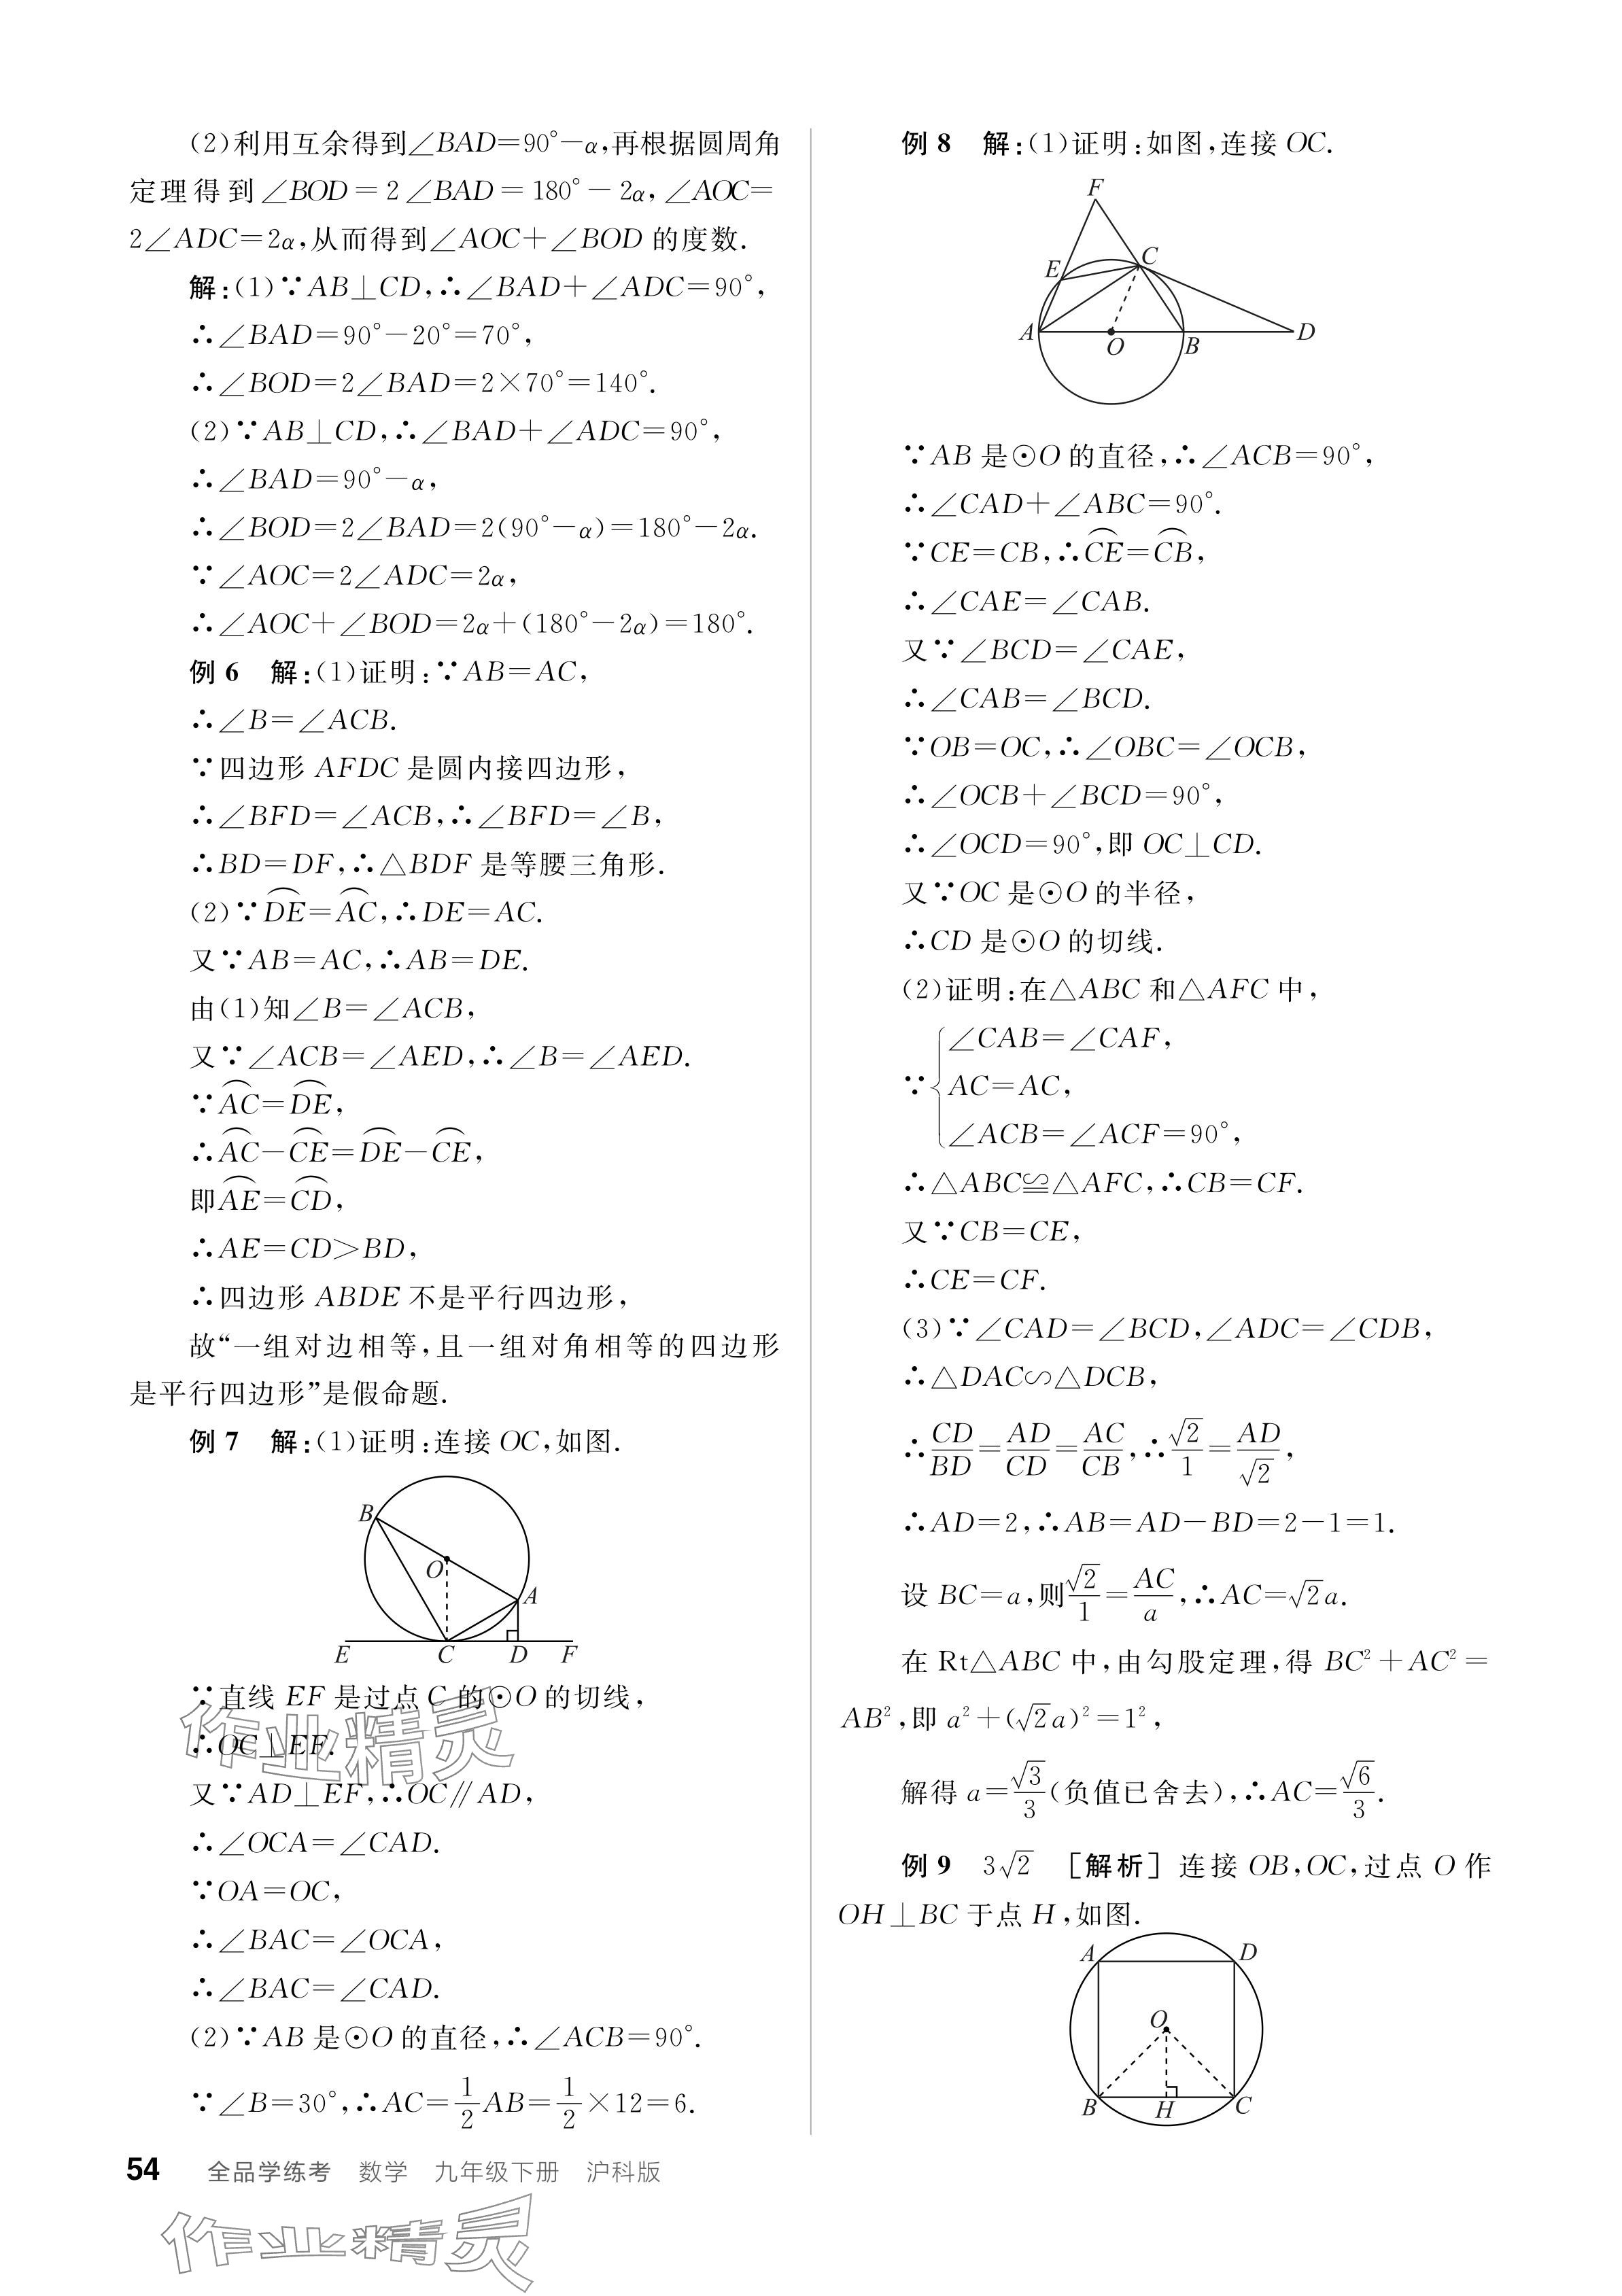 (2)利用互余得到∠BAD=90°-α,再根据圆周角
定理得到∠BOD=2∠BAD=180°-2α,∠AOC=
2∠ADC=2α,从而得到∠AOC+∠BOD的度数.
解:(1)∵AB⊥CD,∴∠BAD+∠ADC=90°,
∴∠BAD=90°-20°=70°,
∴∠BOD=2∠BAD=2×70°=140°.
(2)∵AB⊥CD,∴∠BAD+∠ADC=90°,
∴∠BAD=90°-α,
∴∠BOD=2∠BAD=2(90°-α)=180°-2α.
∵∠AOC=2∠ADC=2α,
∴∠AOC+∠BOD=2α+(180°-2α)=180°.
例6 解:(1)证明:∵AB=AC,
∴∠B=∠ACB.
∵四边形AFDC是圆内接四边形,
∴∠BFD=∠ACB,∴∠BFD=∠B,
∴BD=DF,∴△BDF是等腰三角形.
(2)∵⌒DE=⌒AC,∴DE=AC.
又∵AB=AC,∴AB=DE.
由(1)知∠B=∠ACB,
又∵∠ACB=∠AED,∴∠B=∠AED.
∵⌒AC=⌒DE,
∴⌒AC-⌒CE=⌒DE-⌒CE,
即⌒AE=⌒CD,
∴AE=CD>BD,
∴四边形ABDE不是平行四边形,
故“一组对边相等,且一组对角相等的四边形
是平行四边形”是假命题.
例7 解:(1)证明:连接OC,如图.
B
O
A
E C D F
∵直线EF是过点C的⊙O的切线,
∴OC⊥EF.
又∵AD⊥EF,∴OC∥AD,
∴∠OCA=∠CAD.
∵OA=OC,
∴∠BAC=∠OCA,
∴∠BAC=∠CAD.
(2)∵AB是⊙O的直径,∴∠ACB=90°.
∵∠B=30°,∴AC=1/2AB=1/2×12=6.
例8 解:(1)证明:如图,连接OC.
F
E C
A O B D
∵AB是⊙O的直径,∴∠ACB=90°,
∴∠CAD+∠ABC=90°.
∵CE=CB,∴⌒CE=⌒CB,
∴∠CAE=∠CAB.
又∵∠BCD=∠CAE,
∴∠CAB=∠BCD.
∵OB=OC,∴∠OBC=∠OCB,
∴∠OCB+∠BCD=90°,
∴∠OCD=90°,即OC⊥CD.
又∵OC是⊙O的半径,
∴CD是⊙O的切线.
(2)证明:在△ABC和△AFC中,
∠CAB=∠CAF,
∵{AC=AC,
∠ACB=∠ACF=90°,
∴△ABC≌△AFC,∴CB=CF.
又∵CB=CE,
∴CE=CF.
(3)∵∠CAD=∠BCD,∠ADC=∠CDB,
∴△DAC∽△DCB,
∴CD/BD=AD/CD=AC/CB,∴√2/1=AD/√2,
∴AD=2,∴AB=AD-BD=2-1=1.
设BC=a,则√2/1=AC/a,∴AC=√2a.
在Rt△ABC中,由勾股定理,得BC²+AC²=
AB²,即a²+(√2a)²=1²,
解得a=√3/3(负值已舍去),∴AC=√6/3.
例9 3√2 [解析]连接OB,OC,过点O作
OH⊥BC于点H,如图.
A D
O
B H C
54 全品学练考 数学 九年级下册 沪科版
作业精灵
作业精灵